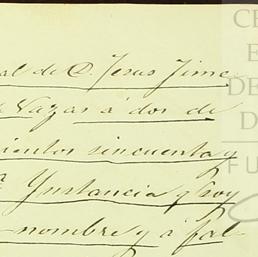 al de D. Jesus Jime
Vazas á dos de
cientos sincuenta y
Ynstancia y soy
nombre y á fal
CE
E
DE
D
FU